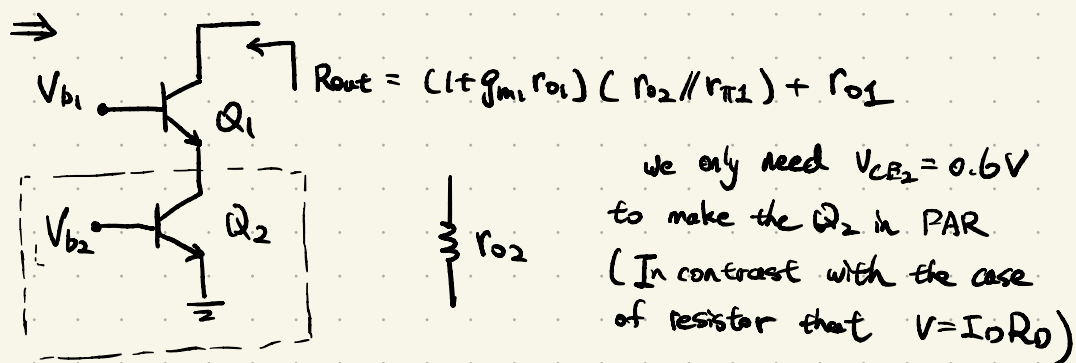 ⇒
Vb1
Q1
Rout = (1+gm1 ro1) ( ro2 // rπ1 ) + ro1
we only need VCE2 = 0.6V
to make the Q2 in PAR
(In contrast with the case
of resistor that V=IDRD)
Vb2
Q2
ro2